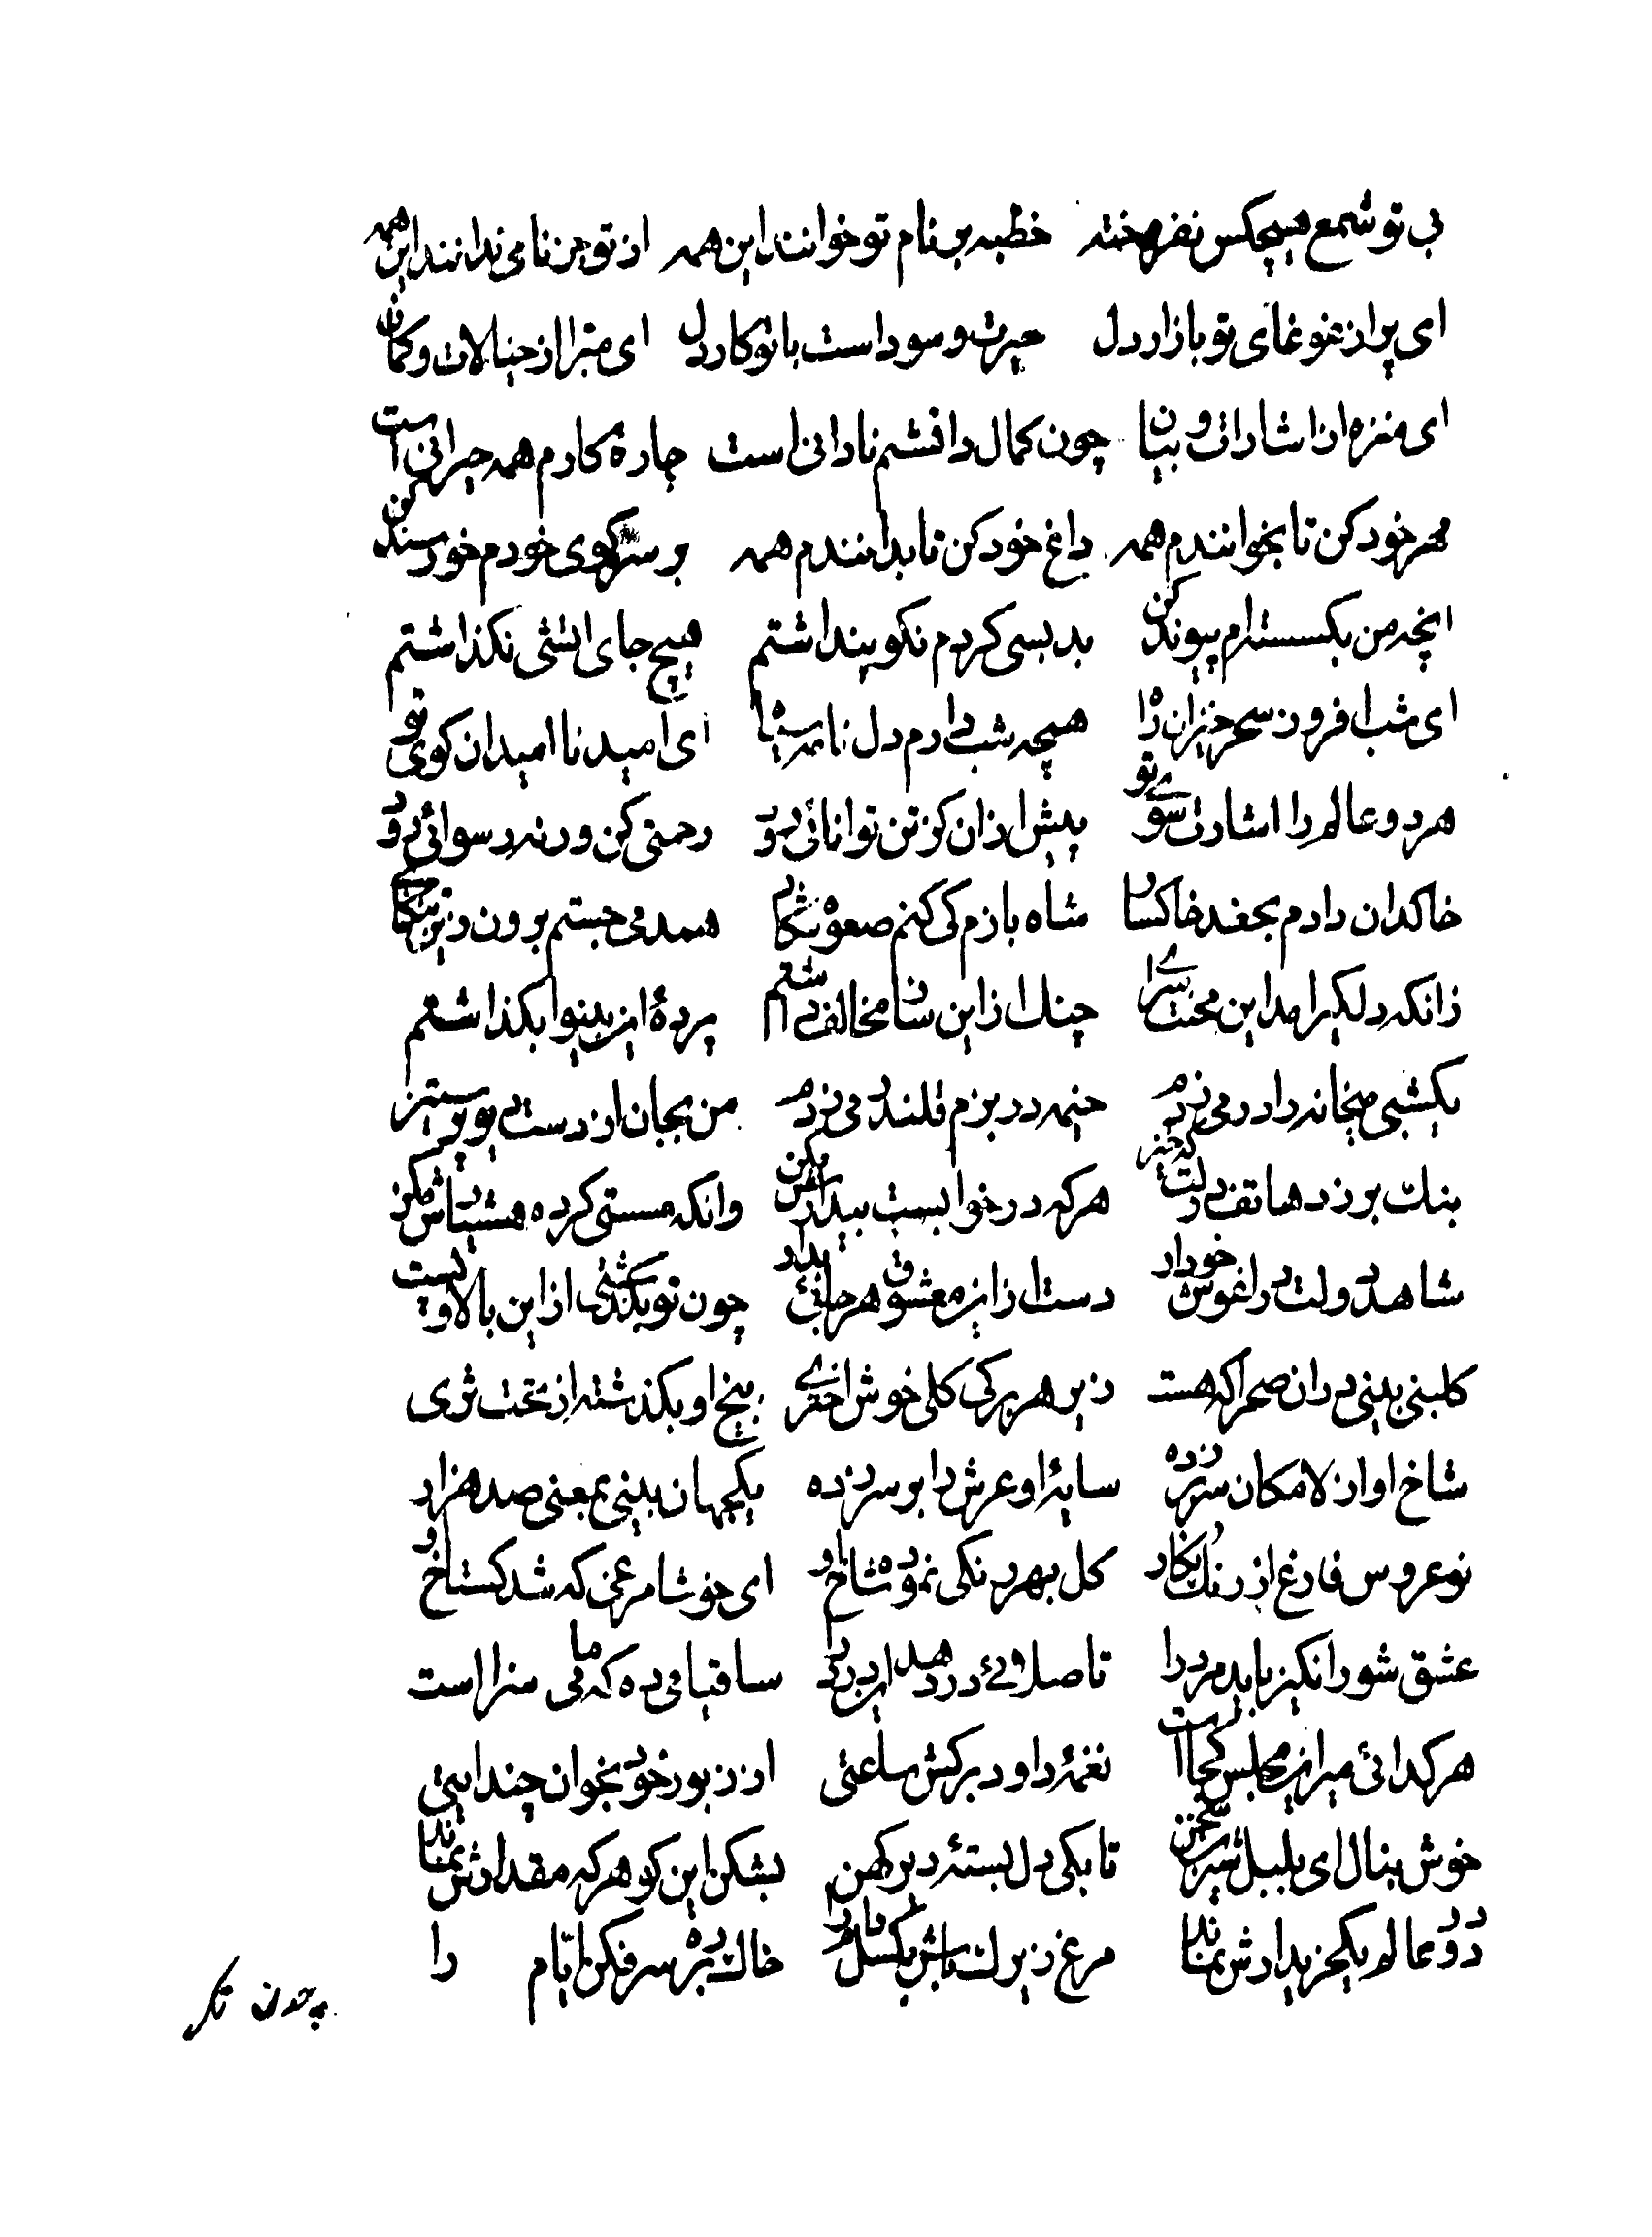 بی تو شمع هیچکس نفروخته خطبه بر نام تو خوانند این همه از تو جز نامی ندانند این همه
ای پر از غوغای تو بازار دل حیرت و سوداست با تو کار دل ای مبرا از خیالات و گمان
ای منزه از اشارات و بیان چون کمال دانشم نادانی است چارهٔ کارم همه حیرانی است
مهر خود کن تا بخوانندم همه داغ خود کن تا بدانندم همه بر سر کوی خودم خورسند کن
انچه من بکسسته‌ام پیوند کن بد بسی کردم نکو پنداشتم هیچ جای اشتی نکذاشتم
ای شب افروز سحر خیزان راه همچه شب دارم دل نامه سیاه ای امید نا امیدان کوی تو
هر دو عالم را اشارت سوی تو پیش از ان کز تن توانائی رود رحمتی کن ورنه رسوائی رود
خاکدان دادم بجغد خاکسار شاه بازم کی کنم صعوه شکار
زانکه دلکیر امد این محنت سرا چنک از این ساز مخالف داشتم پردهٔ این بینوا بکذاشتم
یکشبی میخانه را در می زدم خیمه در بزم قلندر می زدم من بجان از دست
بنک بر زد هاتف دولت که خیز هر که در خوابست بیدارش مکن وانکه مستی کرده هشیارش مکن
شاهد دولت در اغوش خود ار دست از این معشوق هر جائی بدار چون تو بکذشتی از این بالا و پست
کلبنی بینی در ان صحرا که هست زیر هر برکی کلی خوش اختری بیخ او بکذشته از تحت ثری
شاخ او از لامکان سر بر زده سایهٔ او عرش را بر سر زده یکجهان بینی بمعنی صد هزار
نو عروس فارغ از رنک نکار کل بهر رنکی نموده شاخ او ای خوشا مرغی که شد کستاخ او
عشق شور انکیز باید مرد را تا صلائی در دهد این درد را ساقیا می ده که ما می سزا است
هر کدائی میر این مجلس کجا است نغمهٔ داود برکش ساعتی از زبور خود بخوان چند ایتی
خوش بنال ای بلبل شیرین سخن تا بکی دل بستهٔ دیر کهن بشکن این کوهر که مقدارش نماند
در دو عالم یک خریدارش نماند مرغ زیرک باش بکسل دام را خاک ره بر سر فکن ایام را
چون تکر